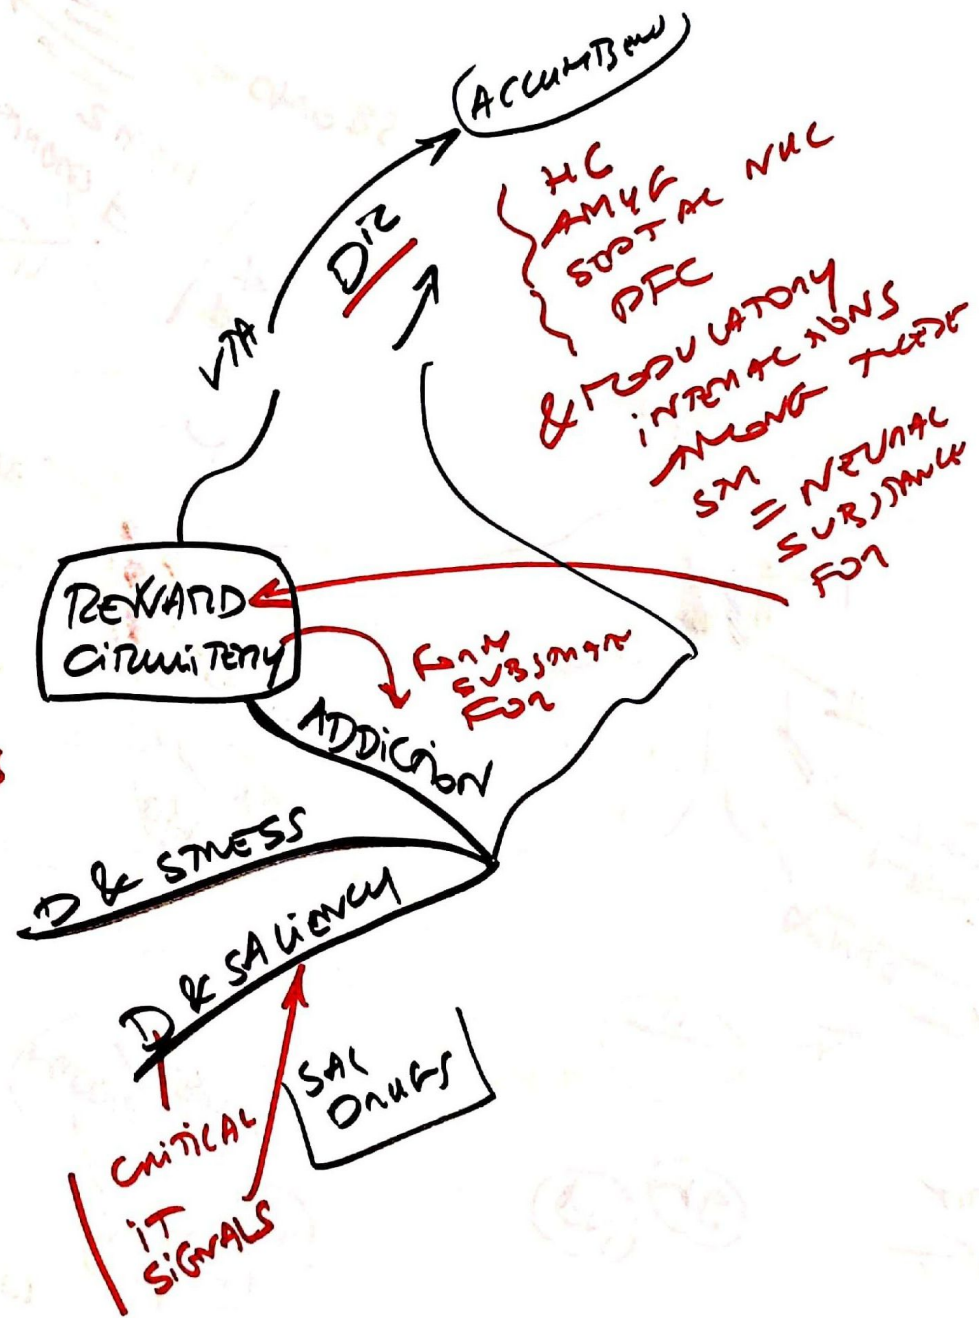 ACCUMBEN
HC
AMYG
SEPTAL NUC
PFC
& MODULATORY
INTERACTIONS
AMONG THESE
= NEURAL
SUBSTANCE
FOR
VTA
REWARD
CIRCUITERY
FORM
FOR
ADDICTION
D & STRESS
D & SALIENCY
SAL
DRUGS
CRITICAL
iT
SIGNALS